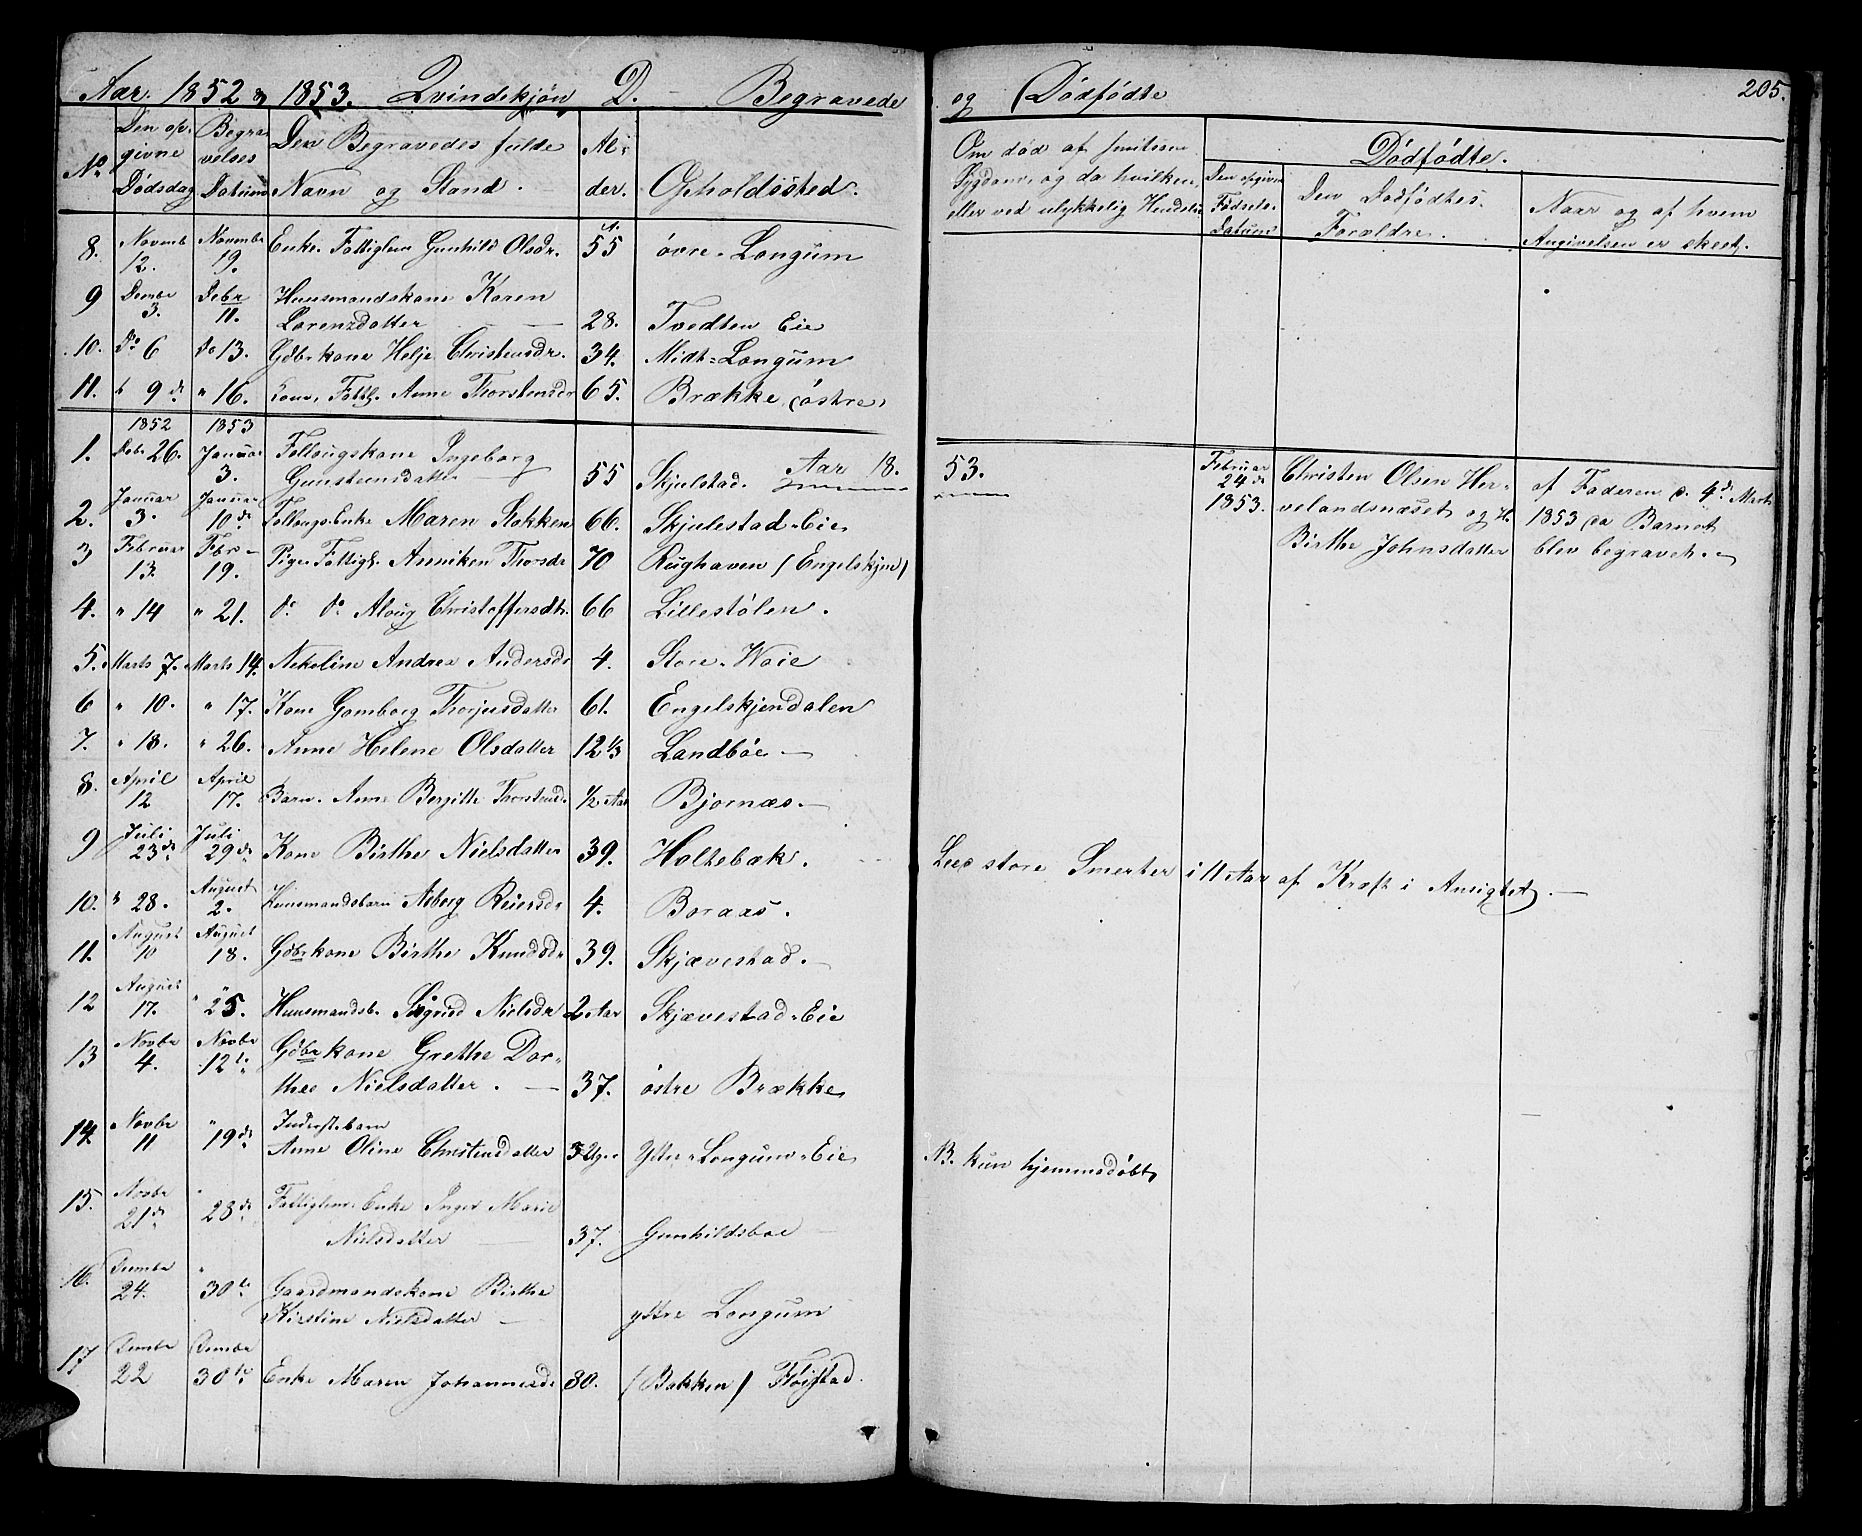 Aar. 1852 & 1853. Qvindekjøn D. - Begravede og Dødfødte 205.
No Den opgivne Dødsdag Begravelses Datum Den Begravedes fulde Navn og Stand. Alder. Opholdssted. Om død af smitsom Sygdom, og da hvilken, eller ved ulykkelig Hændelse
Dødfødte.
Den opgivne Fødsels-Datum Den Dødfødtes Forældre. Naar og af hvem Angivelsen er skeet.
8. Novemb 12. Novembr 19. Enke. Fattiglem Gunhild Olsdr. 55 A. øvre-Longum
9 Dembr 3. Debr 11. Huusmandskone Karen
Lorenzdatter - 28. Tvedten Eie
10. Do 6 Do 13. Gdbrkone Helje Christensdr. 34. Midt-Longum
11. 9de " 16. Kone, Fattigl. Anne Thorstensdr 65. Brække (østre)
1852 1853
1. Debr 26. Januar 3. Follougskone Ingeborg
Gunsteensdatter 55 Skjulstad. Aar 18. 53.
2. Januar 3. Januar 10de Follougs-Enke Maren Stokken 66. Skjulestad-Eie
3 Februar 13. Febr- 19. Pige. Fattigl. Anniken Thorsdr 70 Rughaven (Engelskjøn)
4. " 14 " 21. do do Aloug Christoffersdtr. 66 Lillestølen.
5. Marts 7. Marts 14. Nekoline Andrea Andersdr 4. Store-Waie
6 " 10. " 17. Kone Gomborg Thorjusdatter 61. Engelskjendalen
7. " 18. " 26. Anne Helene Olsdatter 12 1/3 Landbøe -
8. April 12 April 17. Barn. Anne Bergitte Thorstensd. 1/2 Aar Bjornæs. -
9 Juli 23de Juli 29de Kone Birthe Nielsdatter 39. Holtebæk. Leed store Smerter i 11 Aar af Kræft i Ansigtet. -
10. " 28. August 2. Huusmandsbarn Asberg Reiersdr 4. Boraas.
11. August 10 August 18. Gdbrkone Birthe Knudsdr 39. Skjævestad. -
12 August 17. " 25. Huusmandsb. Sigrid Nielsdr 2 Aar Skjævestad-Eie
13 Novbr 4. Novbr 12te Gdbrkone Grethe Dor-
thee Nielsdatter. - 37. østre Brække
14. Novbr 11 " 19de Inderstebarn
Anne Oline Christensdatter 3 Uger Ytre-Longum-Eie NB. kun hjemmedøbt
15. Novbr 21de " 28de Fattiglem. Enke Inger Marie
Nielsdatter - 37. Gunhildsboe -
16. Dembr 24. " 30te Gaardmandskone Birthe
Kirstine Nielsdatter - ystre Longum
17 Dembr 22 Dembr 30te Enke Maren Johannesd. 80. (Bakken) Fløistad.
Februar 24de 1853. Christen Olsen Her-
velandsnæset og H.
Birthe Johnsdatter
af Faderen d. 4de Marts
1853 da Barnet
blev begravet. -